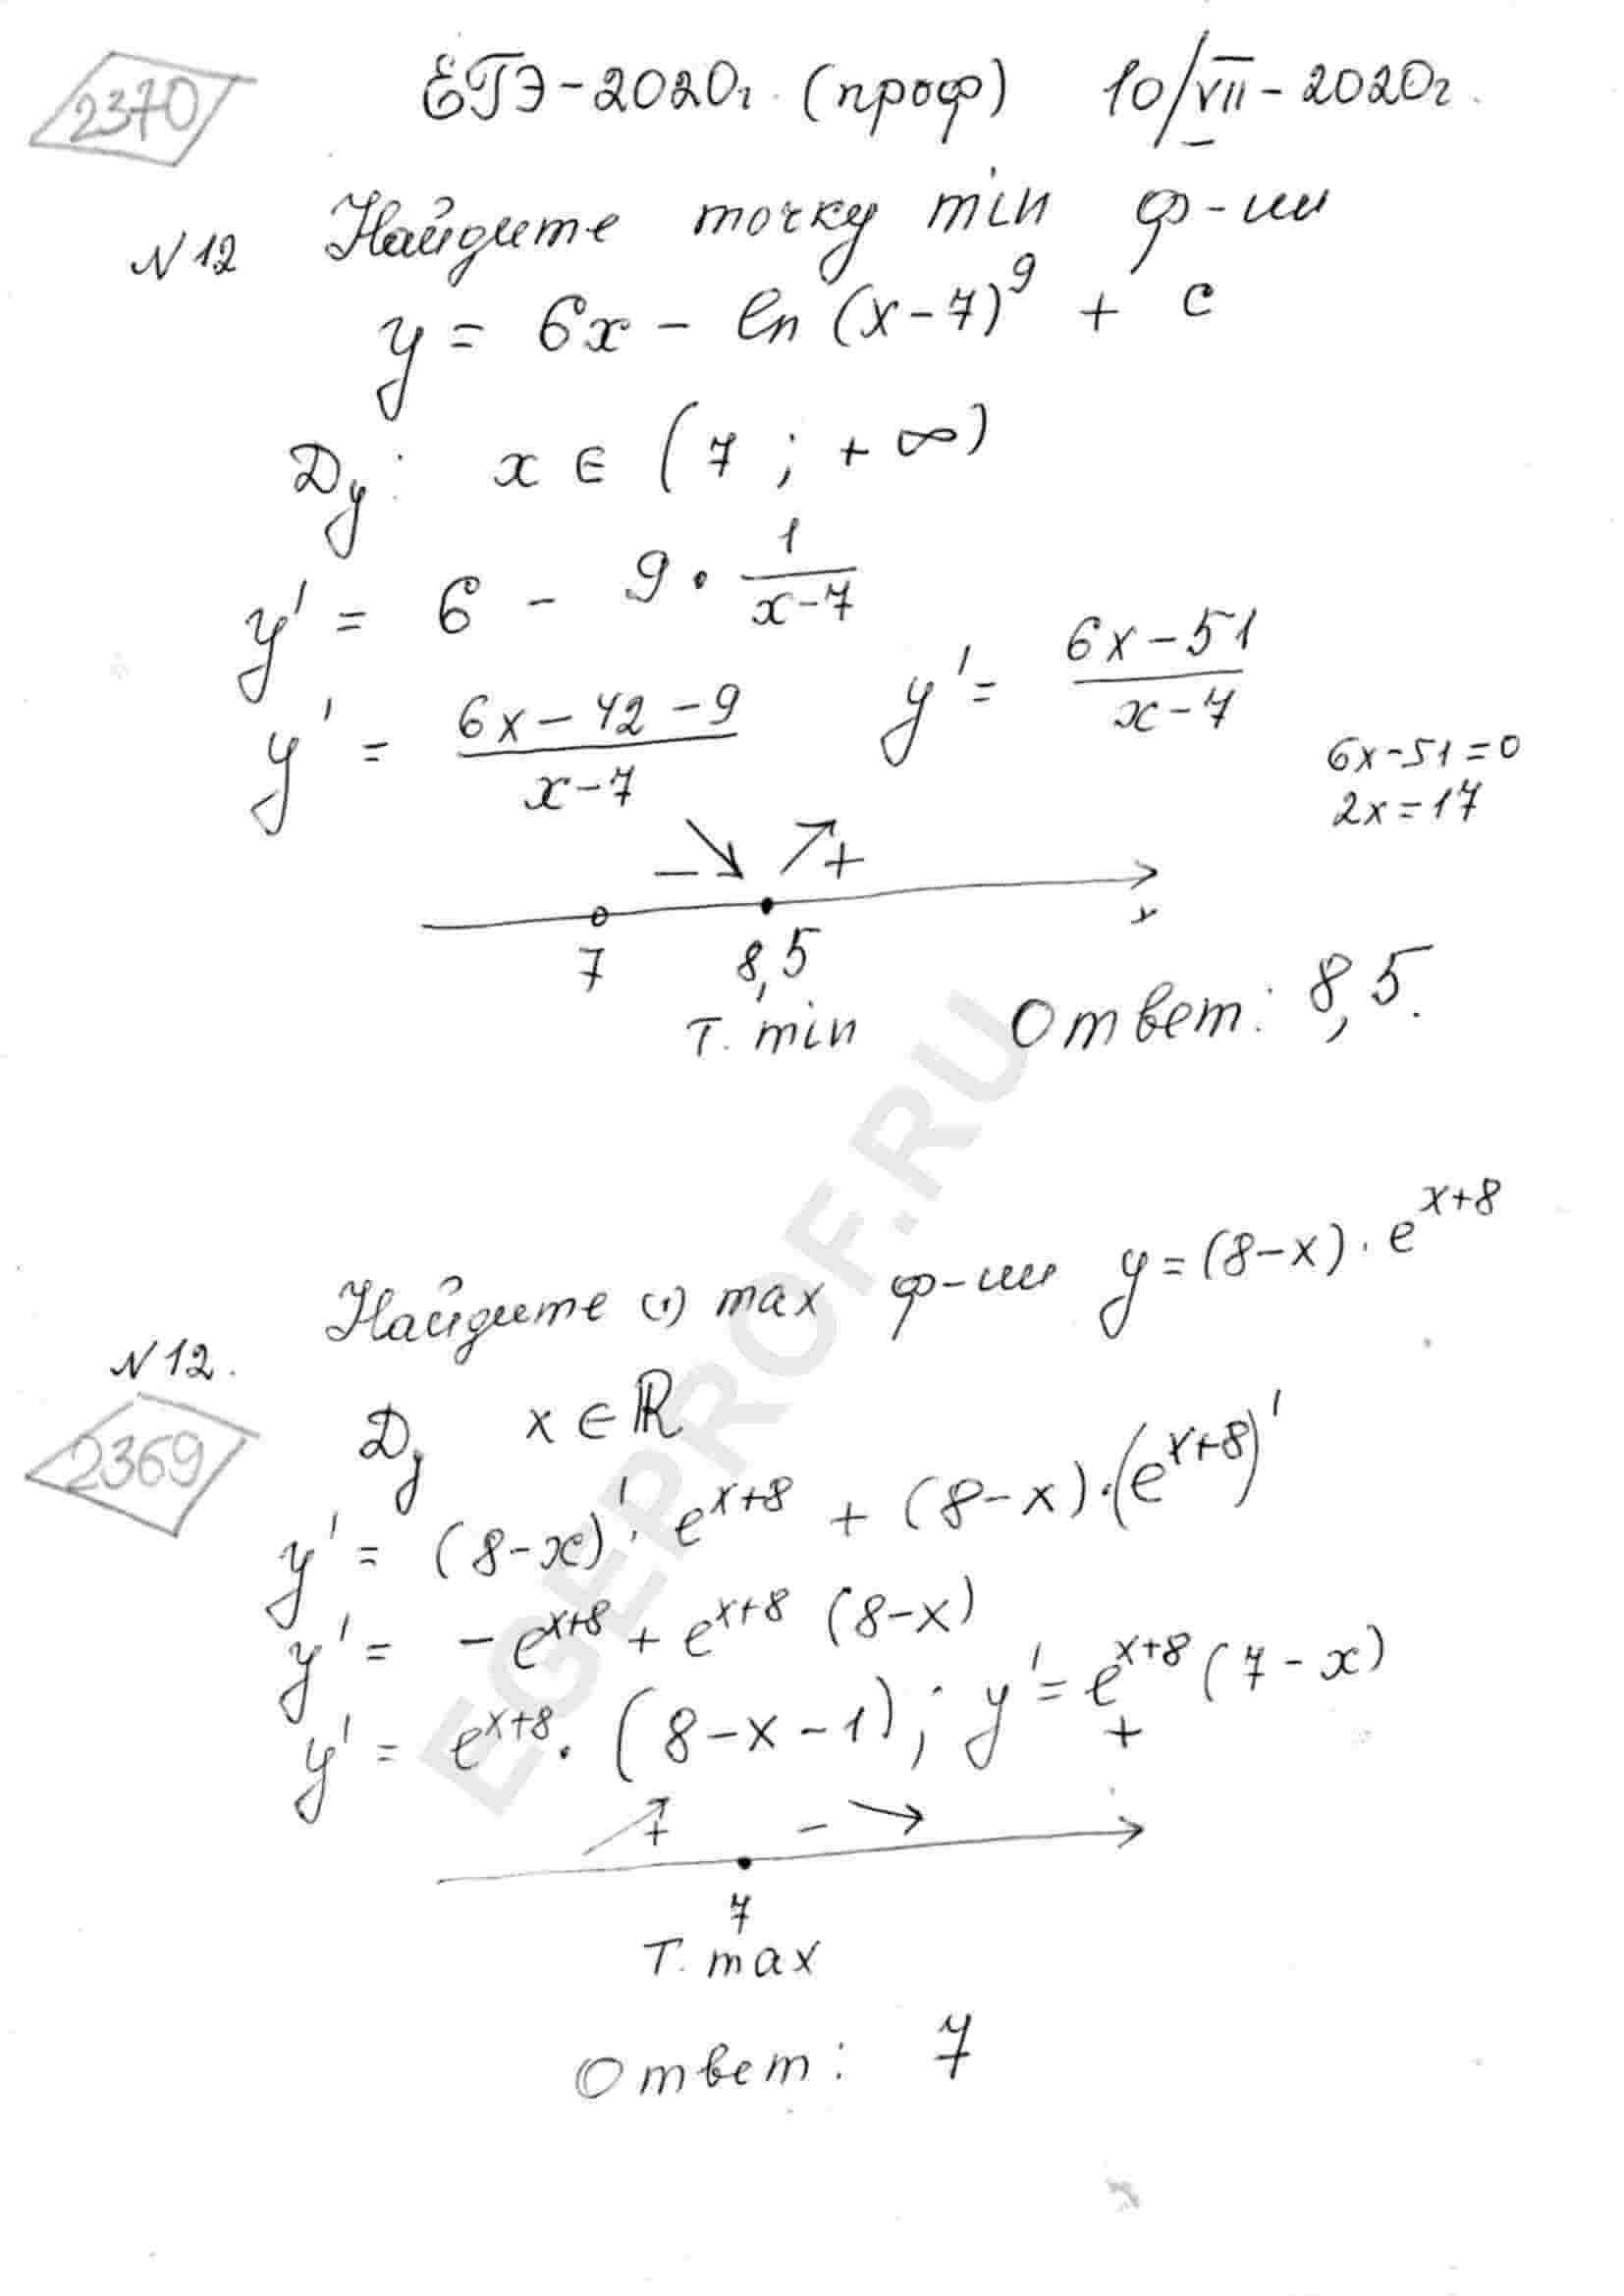 2370
ЕГЭ-2020г. (проф) 10/VII-2020г.
N12 Найдите точку min ф-ии
y = 6x - ln (x-7)^9 + c
Dy: x ∈ (7 ; +∞)
y' = 6 - 9 · 1/(x-7)
y' = (6x-42-9)/(x-7) y' = (6x-51)/(x-7)
6x-51=0
2x=17
- ↘ ↗ +
7 8,5 x
т. min Ответ: 8,5.
N12. Найдите (·) max ф-ии y=(8-x)·e^(x+8)
2369
Dy x ∈ ℝ
y' = (8-x)'·e^(x+8) + (8-x)·(e^(x+8))'
y' = -e^(x+8) + e^(x+8) (8-x)
y' = e^(x+8)·(8-x-1); y' = e^(x+8) (7-x)
+
↗ + - ↘
7
т. max
Ответ: 7
EGEPROF.RU